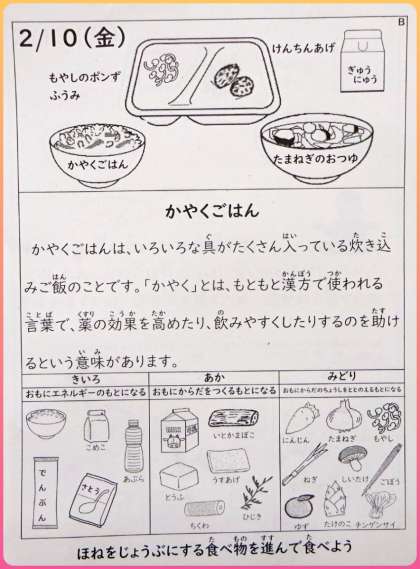 B
2/10(金)
けんちんあげ
もやしのポンず
ふうみ
ぎゅう
にゅう
かやくごはん
たまねぎのおつゆ
かやくごはん
かやくごはんは、いろいろな具がたくさん入っている炊き込
みご飯のことです。「かやく」とは、もともと漢方で使われる
言葉で、薬の効果を高めたり、飲みやすくしたりするのを助け
るという意味があります。
きいろ
おもにエネルギーのもとになる
こめこ
あぶら
でんぷん
さとう
あか
おもにからだをつくるもとになる
いとかまぼこ
うすあげ
とうふ
ひじき
ちくわ
みどり
おもにからだのちょうしをととのえるもとになる
にんじん
たまねぎ
もやし
ねぎ
しいたけ
ごぼう
ゆず
たけのこ
チンゲンサイ
ほねをじょうぶにする食べ物を進んで食べよう